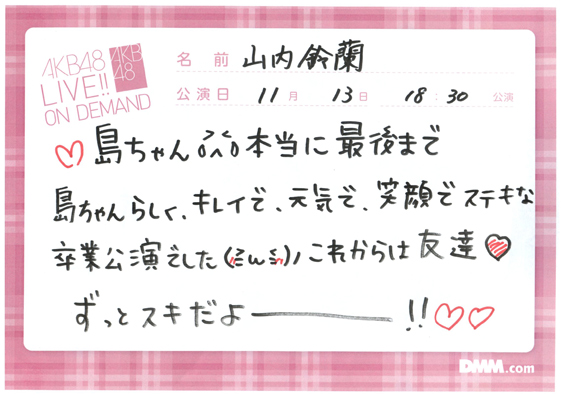 AKB48
LIVE!!
ON DEMAND
AKB
48
名前 山内鈴蘭
公演日 11月 13日 18:30 公演
♡島ちゃん 本当に最後まで
島ちゃんらしく、キレイで、元気で、笑顔でステキな
卒業公演でした(ミωミ)ノこれからは友達♥
ずっとスキだよ――!!♡♡
DMM.com